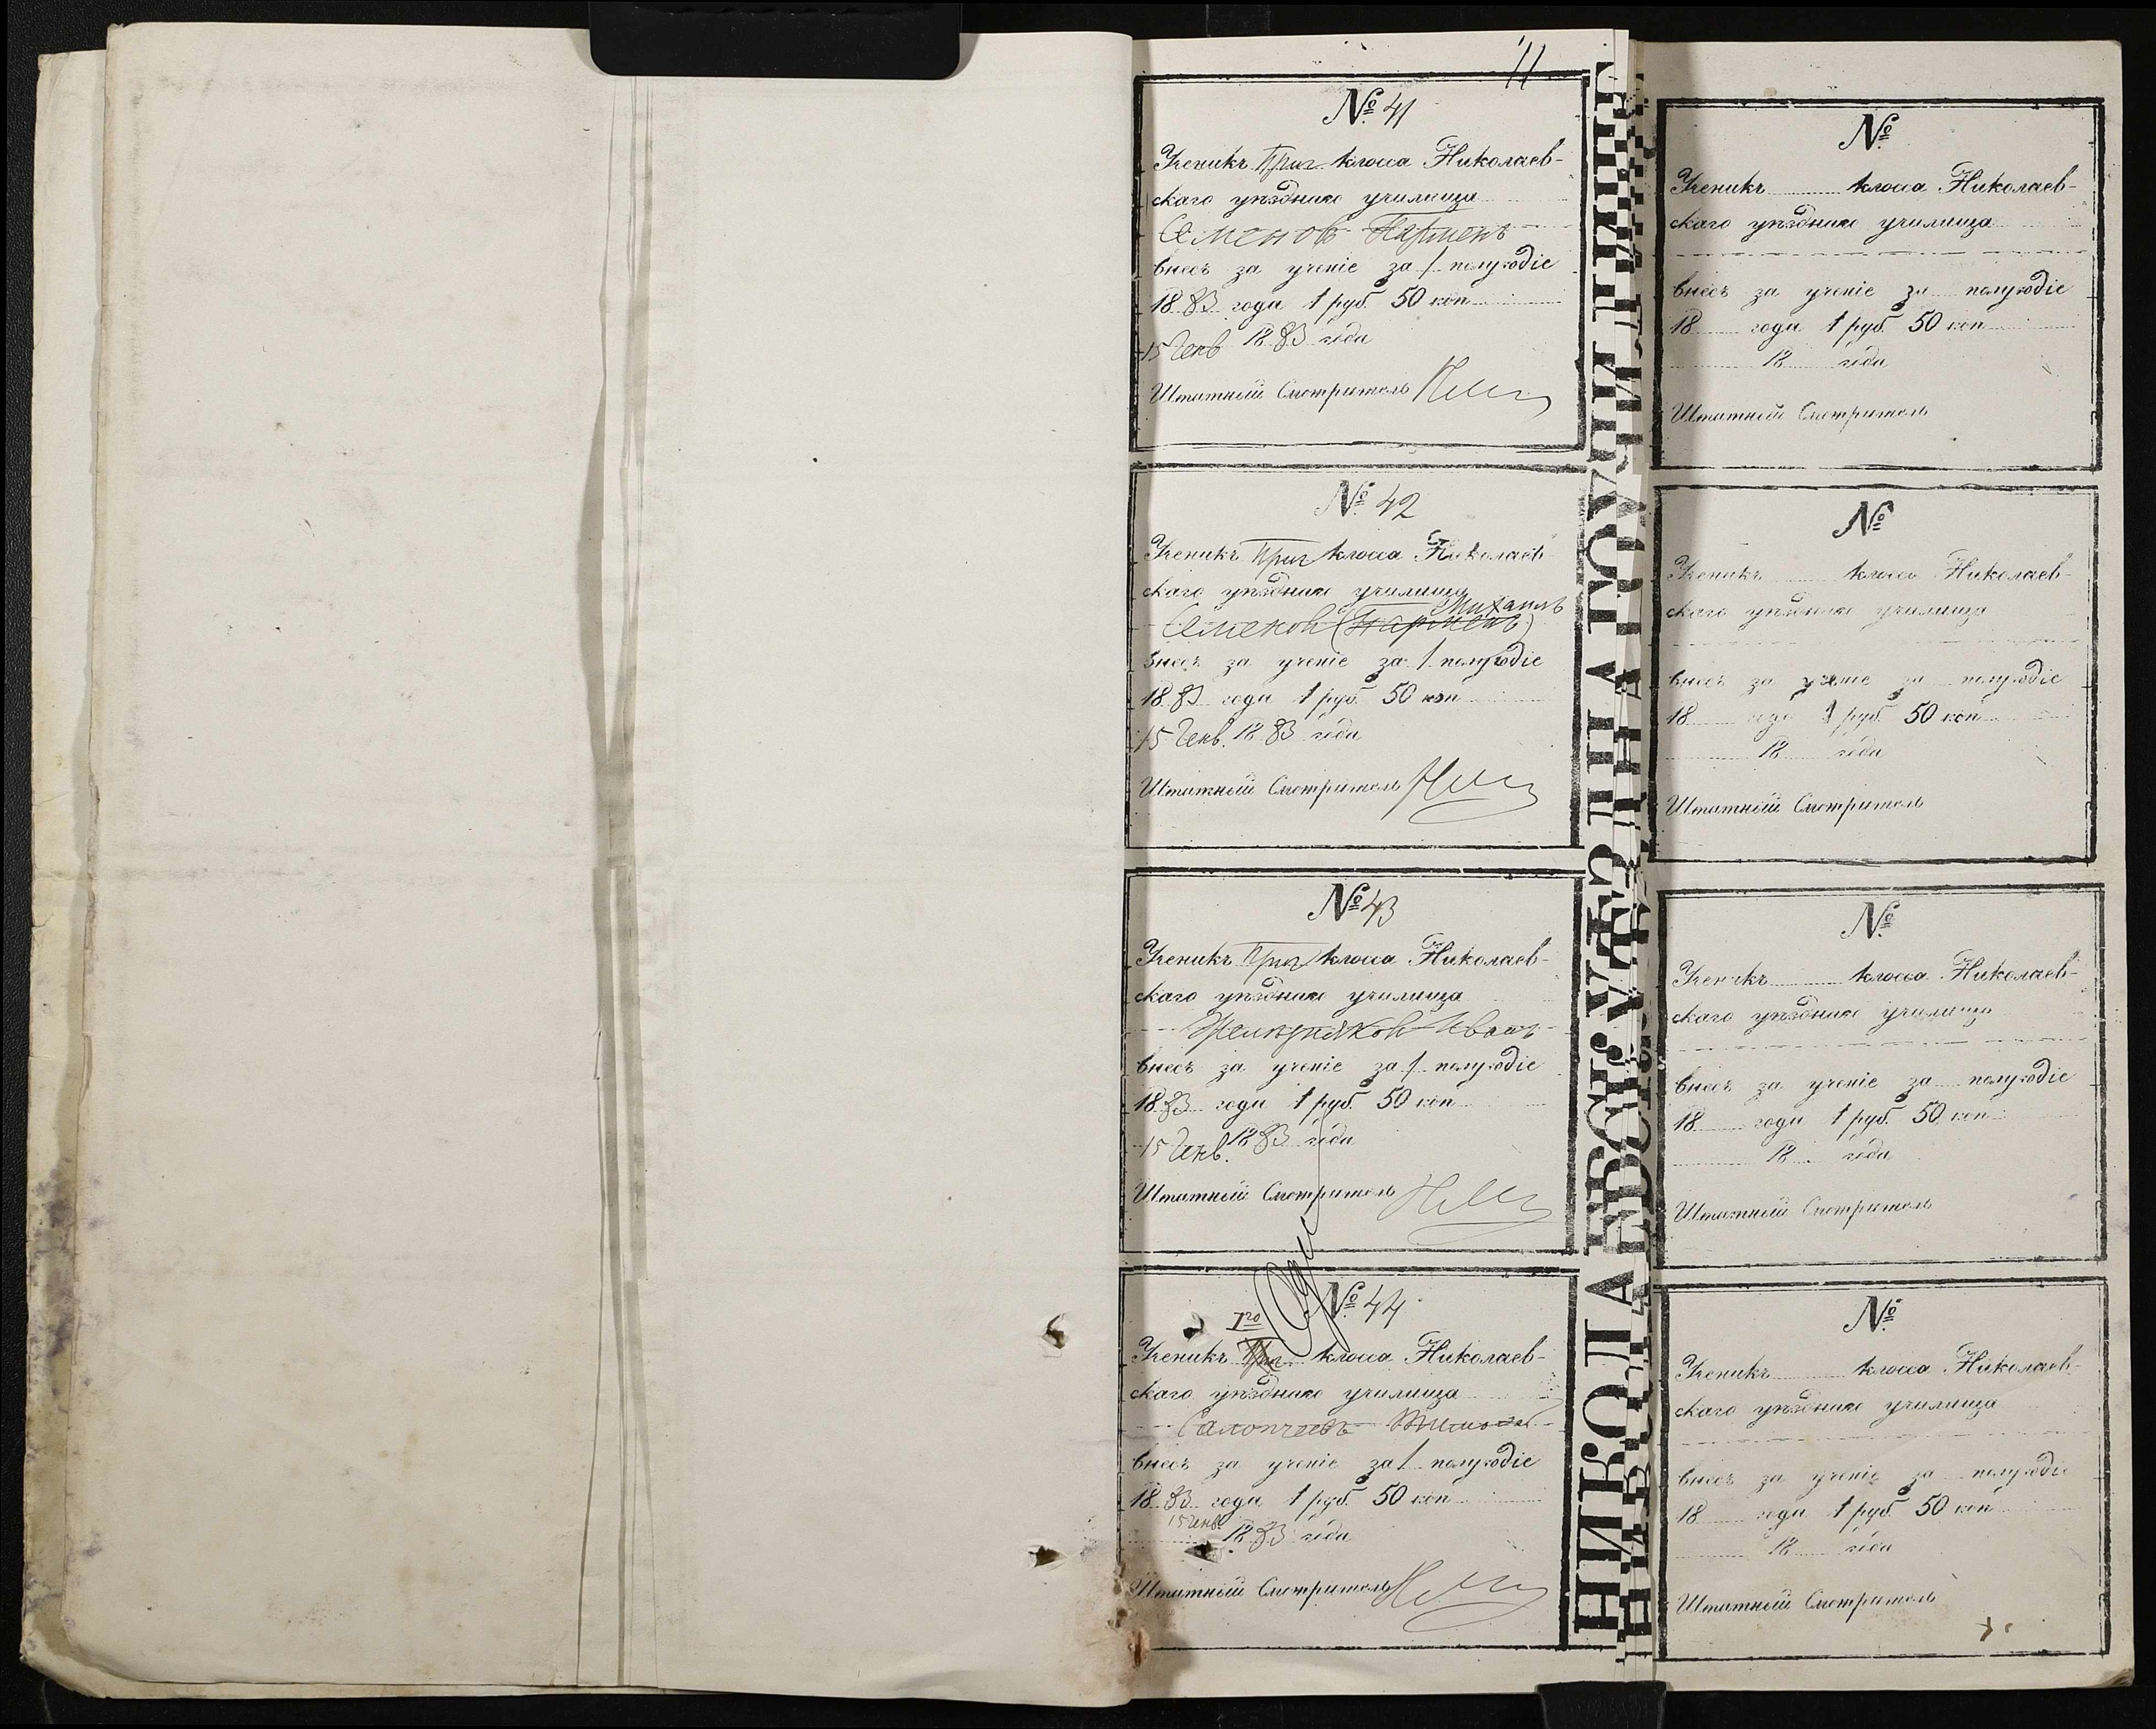 11
№ 41
Ученикъ Приг класса Николаев-
скаго уѣзднаго училища
Семеновъ Парменъ
внесъ за ученіе за 1 полугодіе
18 83 года 1 руб. 50 коп
15 Генв 18 83 года
Штатный Смотритель
№ 42
Ученикъ Приг класса Николаев-
скаго уѣзднаго училища
Михаилъ
Семеновъ (Парменъ)
внесъ за ученіе за 1 полугодіе
18 83 года 1 руб. 50 коп
15 Генв. 18 83 года
Штатный Смотритель
№ 43
Ученикъ Приг класса Николаев-
скаго уѣзднаго училища
Иванъ
внесъ за ученіе за 1 полугодіе
18 83 года 1 руб. 50 коп
15 Генв. 18 83 года
Штатный Смотритель
№ 44
Iго
Ученикъ Приг класса Николаев-
скаго уѣзднаго училища
внесъ за ученіе за 1 полугодіе
18 83 года 1 руб. 50 коп
15 Генв.
18 83 года
Штатный Смотритель
№
Ученикъ класса Николаев-
скаго уѣзднаго училища
внесъ за ученіе за полугодіе
18 года 1 руб. 50 коп
18 года
Штатный Смотритель
№
Ученикъ класса Николаев-
скаго уѣзднаго училища
внесъ за ученіе за полугодіе
18 года 1 руб. 50 коп
18 года
Штатный Смотритель
№
Ученикъ класса Николаев-
скаго уѣзднаго училища
внесъ за ученіе за полугодіе
18 года 1 руб. 50 коп
18 года
Штатный Смотритель
№
Ученикъ класса Николаев-
скаго уѣзднаго училища
внесъ за ученіе за полугодіе
18 года 1 руб. 50 коп
18 года
Штатный Смотритель